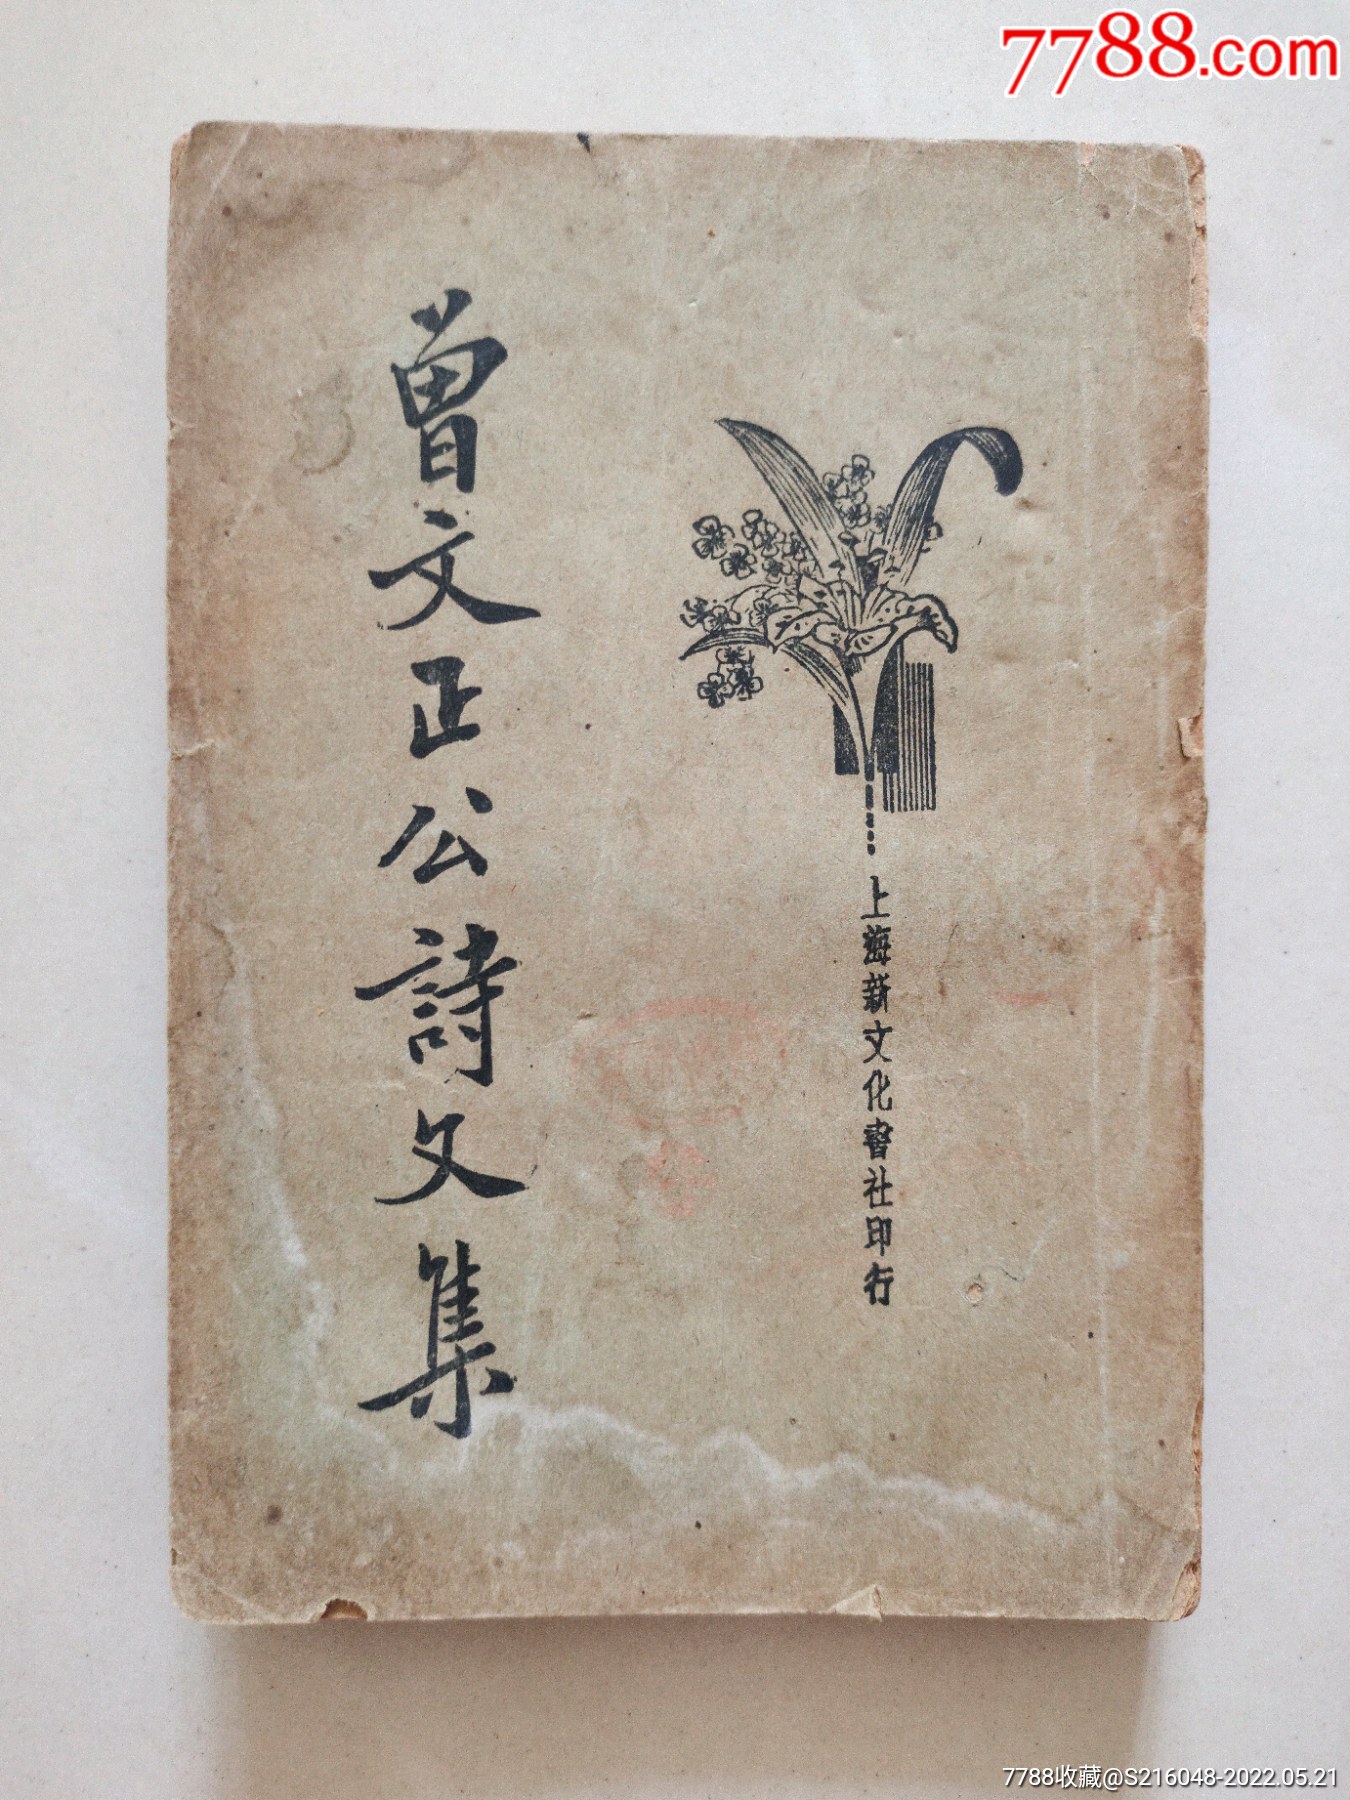 7788.com
曾文正公詩文集
上海新文化書社印行
7788收藏@S216048-2022.05.21